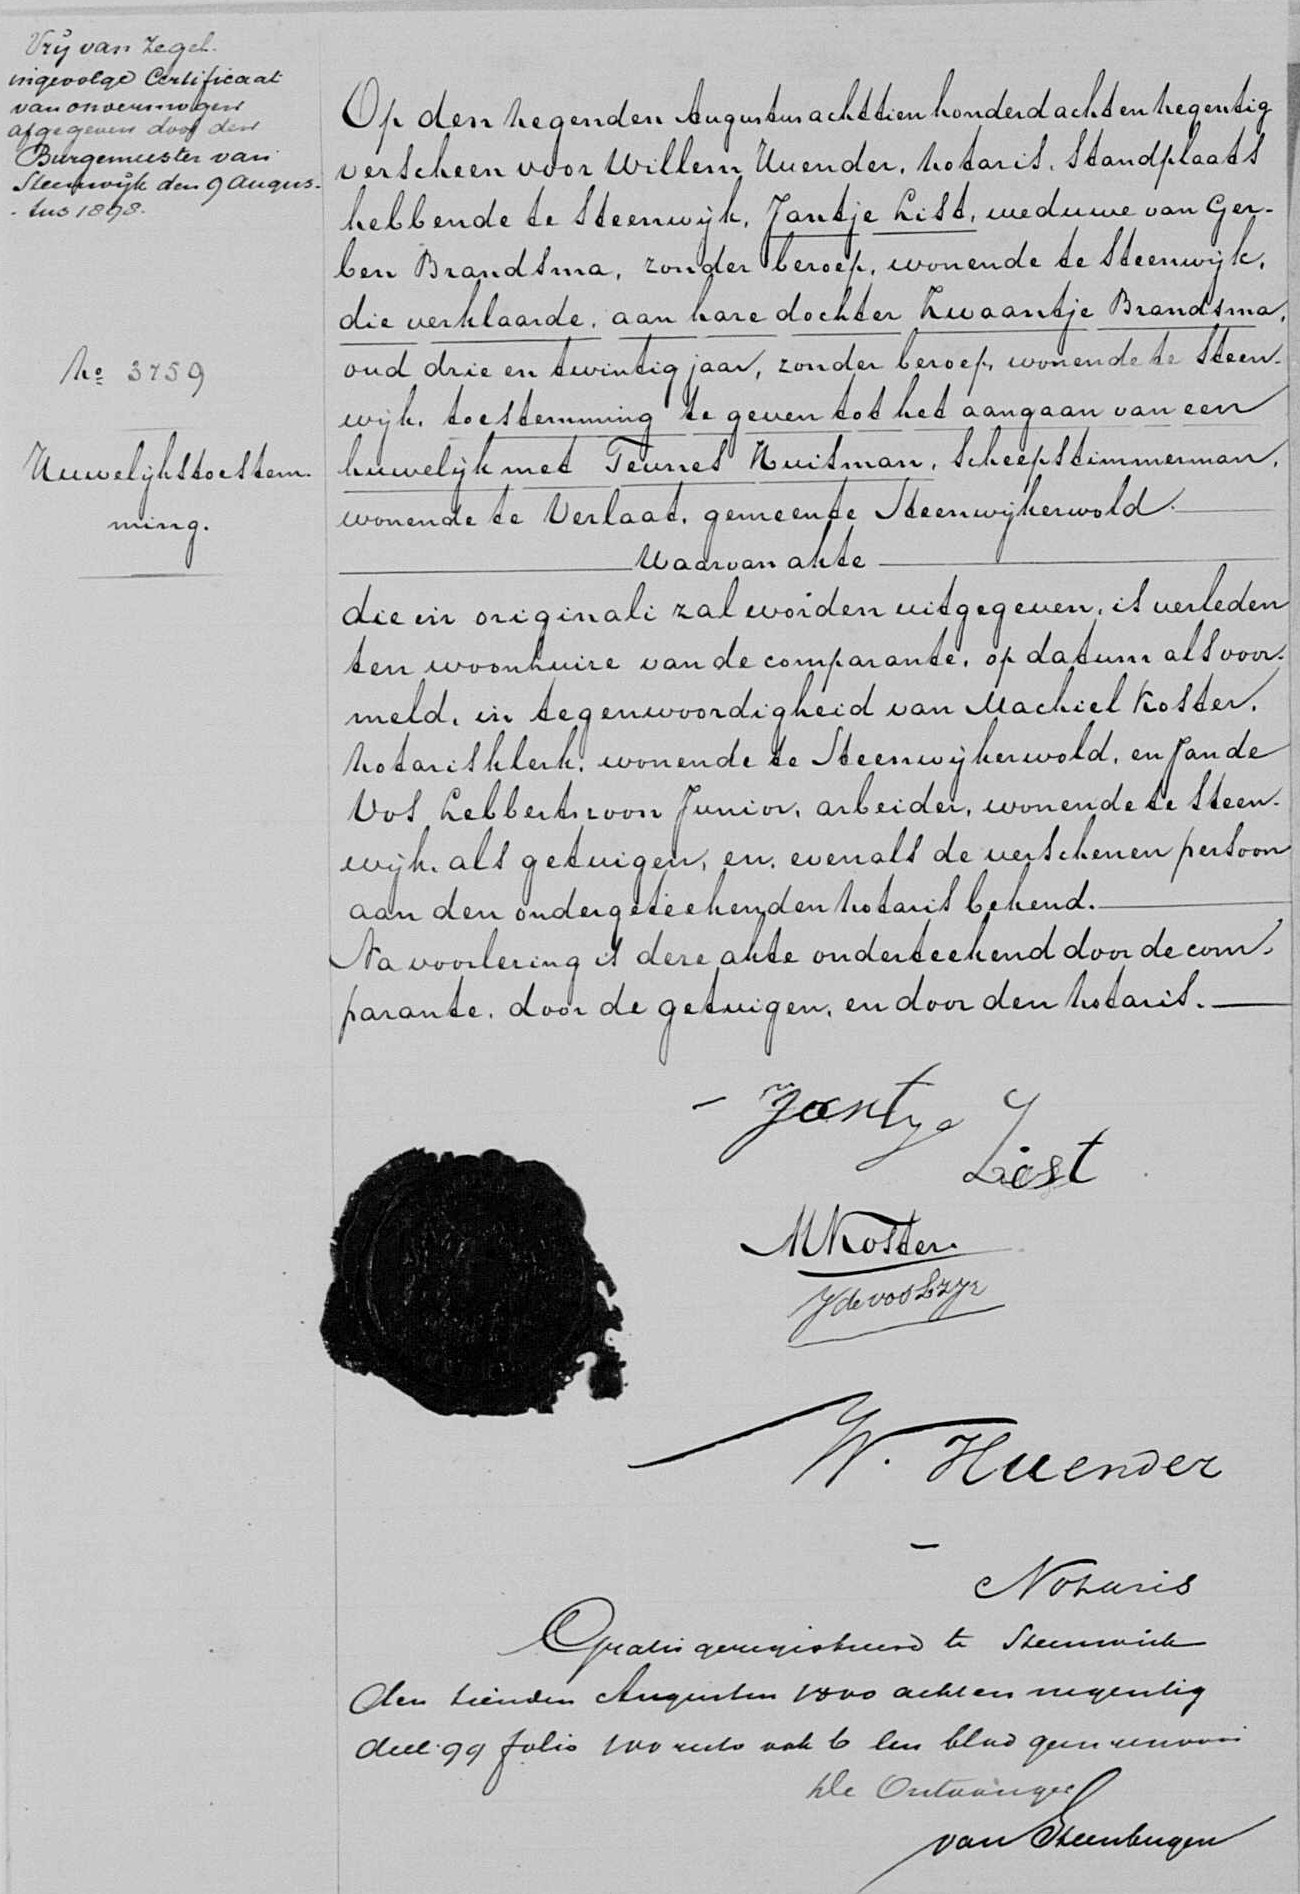 Vrij van zegel
ingevolge Certificaat
van onvermogen
afgegeven door den
Burgemeester van
Steenwijk den 9 Augus-
-tus 1898.
No 3759
Huwelijkstoestem-
ming.
Op den negenden Augustus achttienhonderd achtennegentig
verscheen voor Willem Huender, notaris, standplaats
hebbende te Steenwijk, Jantje List, weduwe van Ger-
ben Brandsma, zonder beroep, wonende te Steenwijk,
die verklaarde, aan hare dochter Zwaantje Brandsma,
oud drie en twintig jaar, zonder beroep, wonende te Steen-
wijk, toestemming te geven tot het aangaan van een
huwelijk met Teunes Huisman, scheepstimmerman,
wonende te Verlaat, gemeente Steenwijkerwold.
Waarvan akte
die in originali zal worden uitgegeven, is verleden
ten woonhuize van de comparante, op datum als voor-
meld, in tegenwoordigheid van Machiel Koster,
notarisklerk, wonende te Steenwijkerwold, en Jan de
Vos Lebbertszoon Junior, arbeider, wonende te Steen-
wijk, als getuigen, en, evenals de verschenen persoon
aan den ondergeteekenden notaris bekend.
Na voorlezing is deze akte onderteekend door de com-
parante, door de getuigen, en door den notaris.
Jantje
List
MKoster
J de vos Lz Jr
W. Huender
Notaris
Gratis geregistreerd te Steenwijk
den tienden Augustus 1800 acht en negentig
deel 99 folio 100 recto vak 6 een blad geen renvooi
De Ontvanger
van Steenbergen